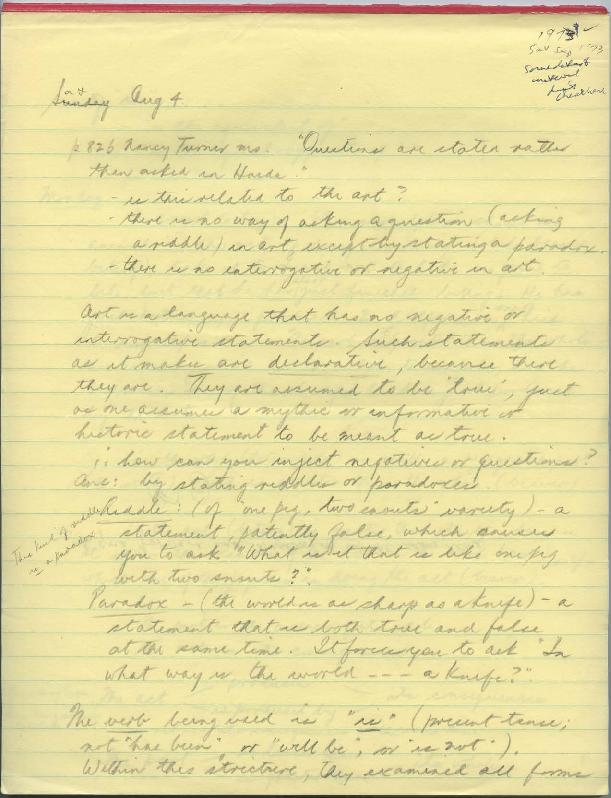 197
Sat Sep 1 73
Sat
Sunday Aug 4
p 826 Nancy Turner ms. "Questions are stated rather
than asked in Haida."
- is this related to the art?
- there is no way of asking a question (asking
a riddle) in art, except by stating a paradox.
- there is no interrogative or negative in art.
Art is a language that has no negative or
interrogative statements. Such statements
as it makes are declarative, because there
they are. They are assumed to be 'true', just
as one assumes a mythic or informative or
historic statement to be meant as true.
∴ how can you inject negatives or questions?
Ans: by stating riddles or paradoxes.
Riddle: (of "one pig, two snouts" variety) - a
statement, patently false, which causes
you to ask "What is it that is like one pig
with two snouts?".
This kind of riddle
is a paradox
Paradox - (the world is as sharp as a knife) - a
statement that is both true and false
at the same time. It forces you to ask "In
what way is the world --- a knife?"
The verb being used is "is" (present tense;
not "has been" or "will be", or "is not").
Within this structure, they examined all forms